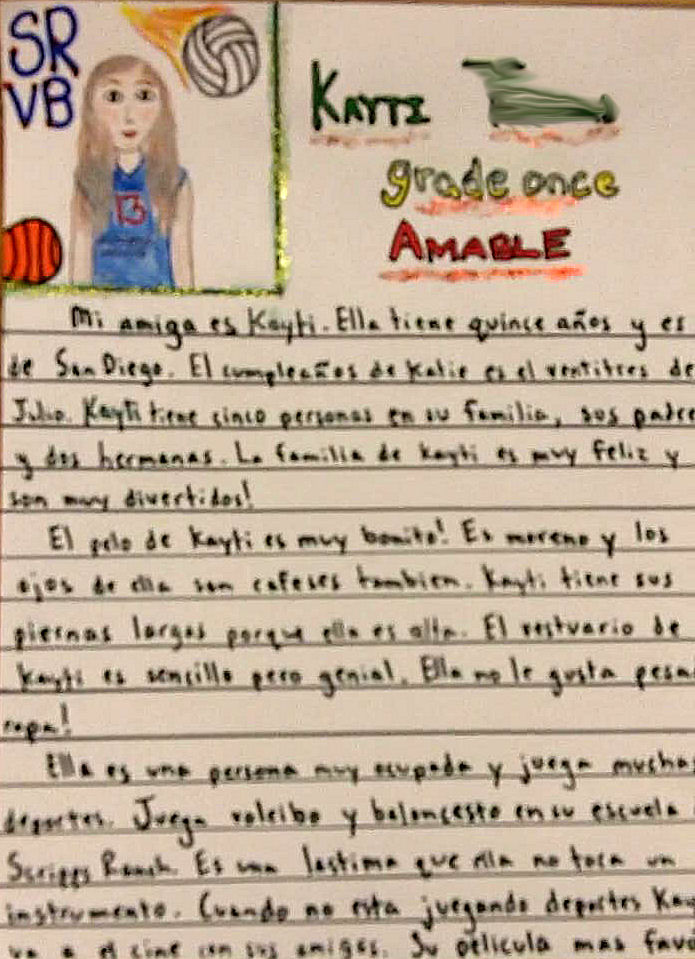 SR
VB
13
KAYTI
grade once
AMABLE
Mi amiga es Kayti. Ella tiene quince años y es
de San Diego. El cumpleaños de Katie es el ventitres de
Julio. Kayti tiene cinco personas en su familia, sus padre
y dos hermanas. La familia de Kayti es muy feliz y
son muy divertidos!
El pelo de Kayti es muy bonito! Es moreno y los
ojos de ella son cafeses tambien. Kayti tiene sus
piernas largas porque ella es alta. El vestuario de
Kayti es sencillo pero genial. Ella no le gusta pesa
ropa!
Ella es una persona muy ocupada y juega muchas
deportes. Juega voleibo y baloncesto en su escuela
Scripps Ranch. Es una lastima que ella no toca un
instrumento. Cuando no esta juegando deportes Kay
va a el cine con sus amigas. Su pelicula mas favo